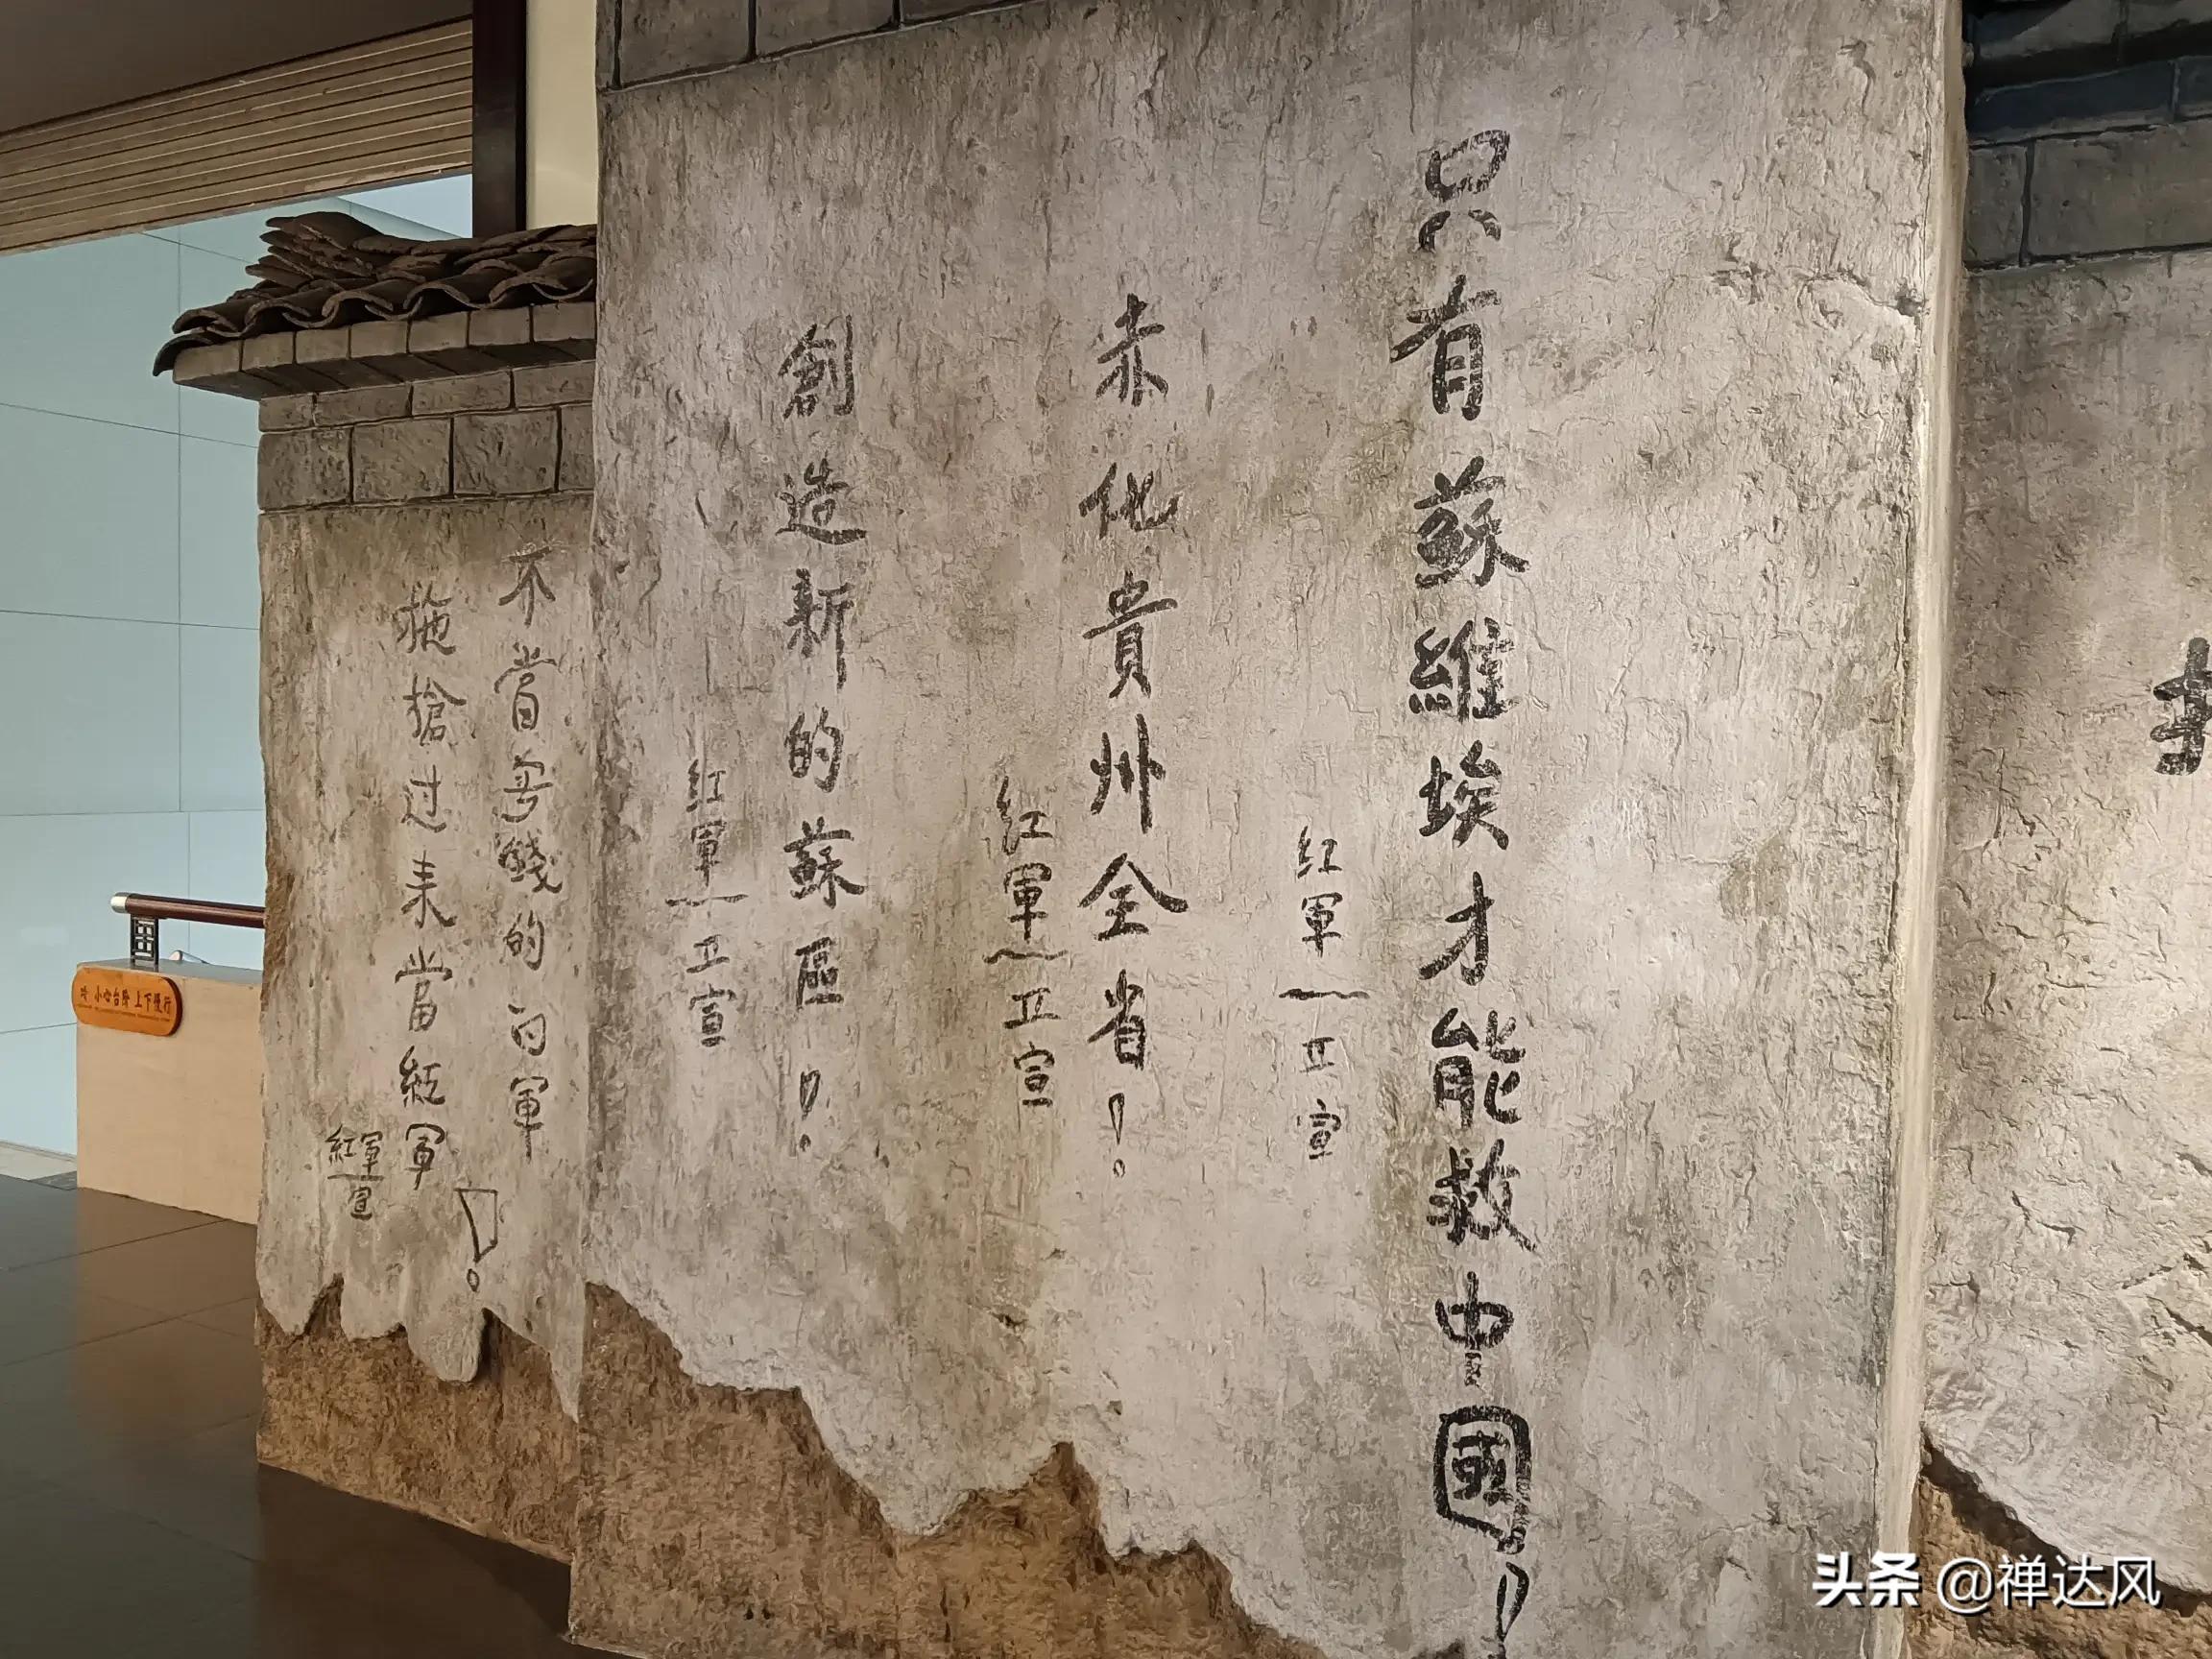 只有蘇維埃才能救中國！
红軍 宣
赤化貴州全省！
红軍 宣
創造新的蘇區！
红軍 宣
不當 錢的白軍
拖槍过来當紅軍！
紅軍宣
小心台阶 上下慢行
头条 @禅达风